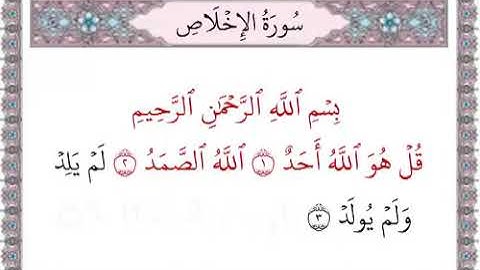 سُورَةُ الإِخْلَاصِ
بِسْمِ ٱللَّهِ ٱلرَّحْمَٰنِ ٱلرَّحِيمِ
قُلْ هُوَ ٱللَّهُ أَحَدٌ ١ ٱللَّهُ ٱلصَّمَدُ ٢ لَمْ يَلِدْ
وَلَمْ يُولَدْ ٣